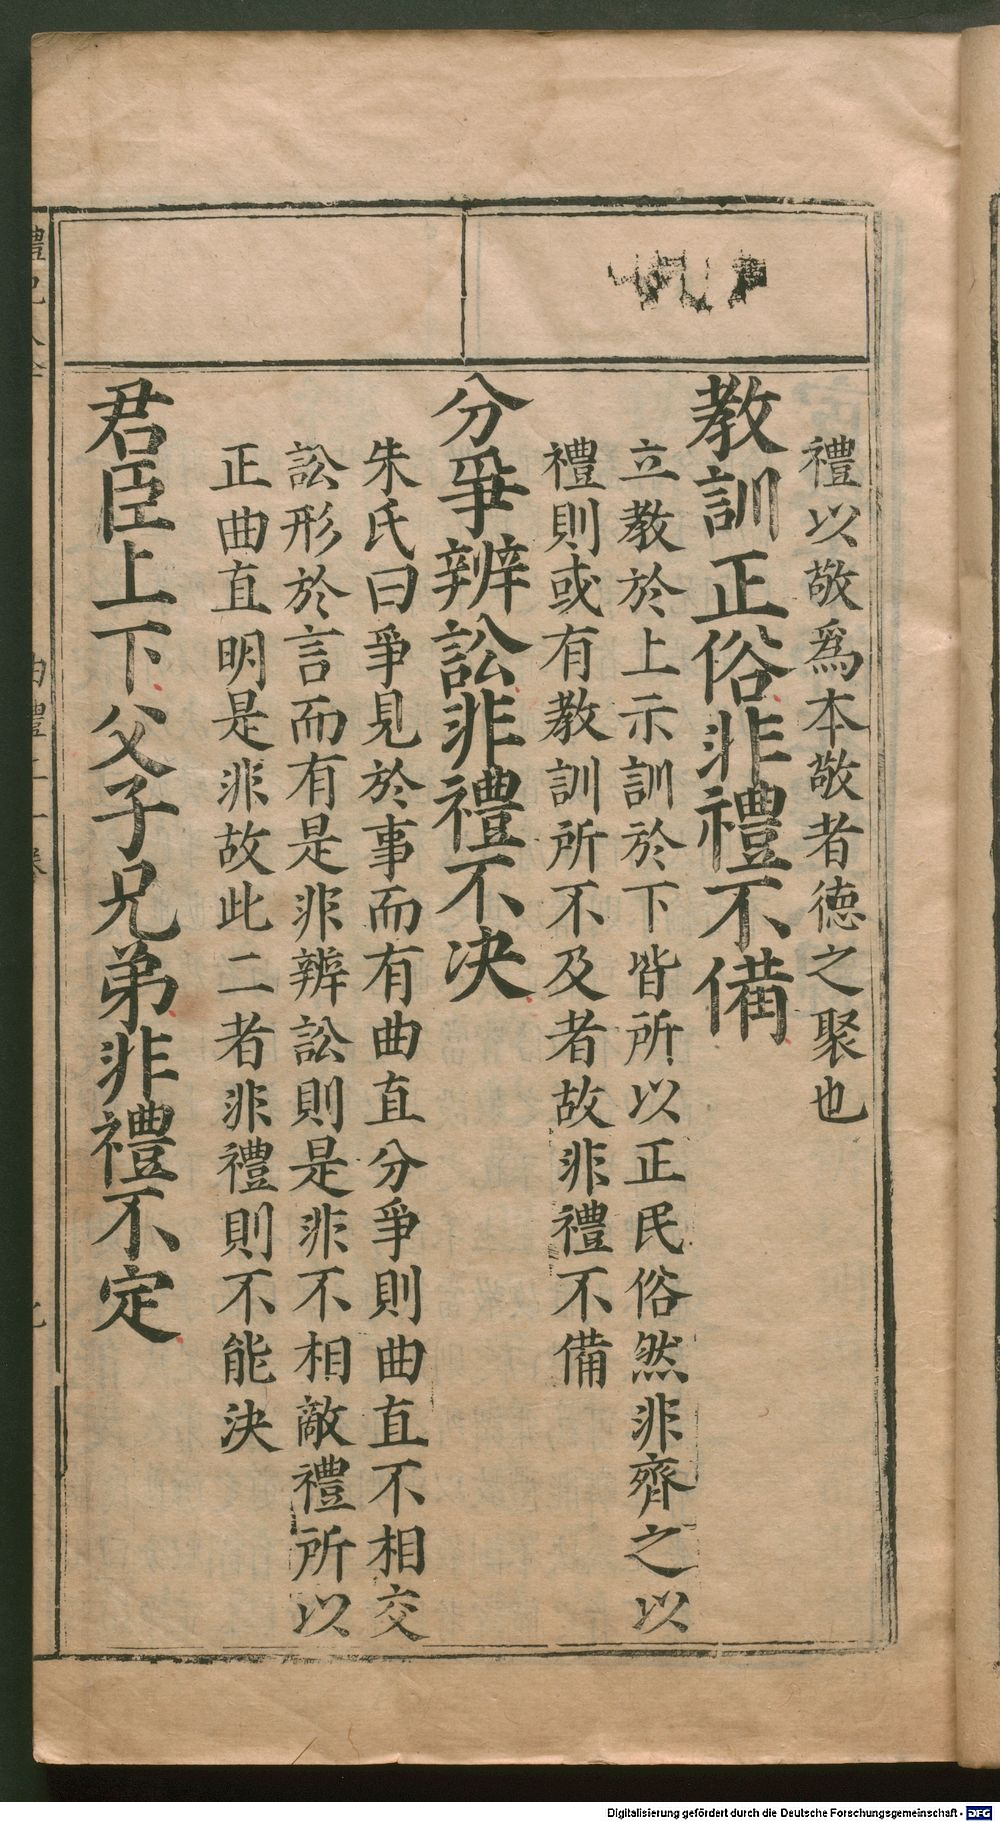 禮以敬爲本敬者德之聚也
教訓正俗非禮不備
立教於上示訓於下皆所以正民俗然非齊之以
禮則或有教訓所不及者故非禮不備
分爭辨訟非禮不决
朱氏曰爭見於事而有曲直分爭則曲直不相交
訟形於言而有是非辨訟則是非不相敵禮所以
正曲直明是非故此二者非禮則不能決
君臣上下父子兄弟非禮不定
Digitalisierung gefördert durch die Deutsche Forschungsgemeinschaft - DFG